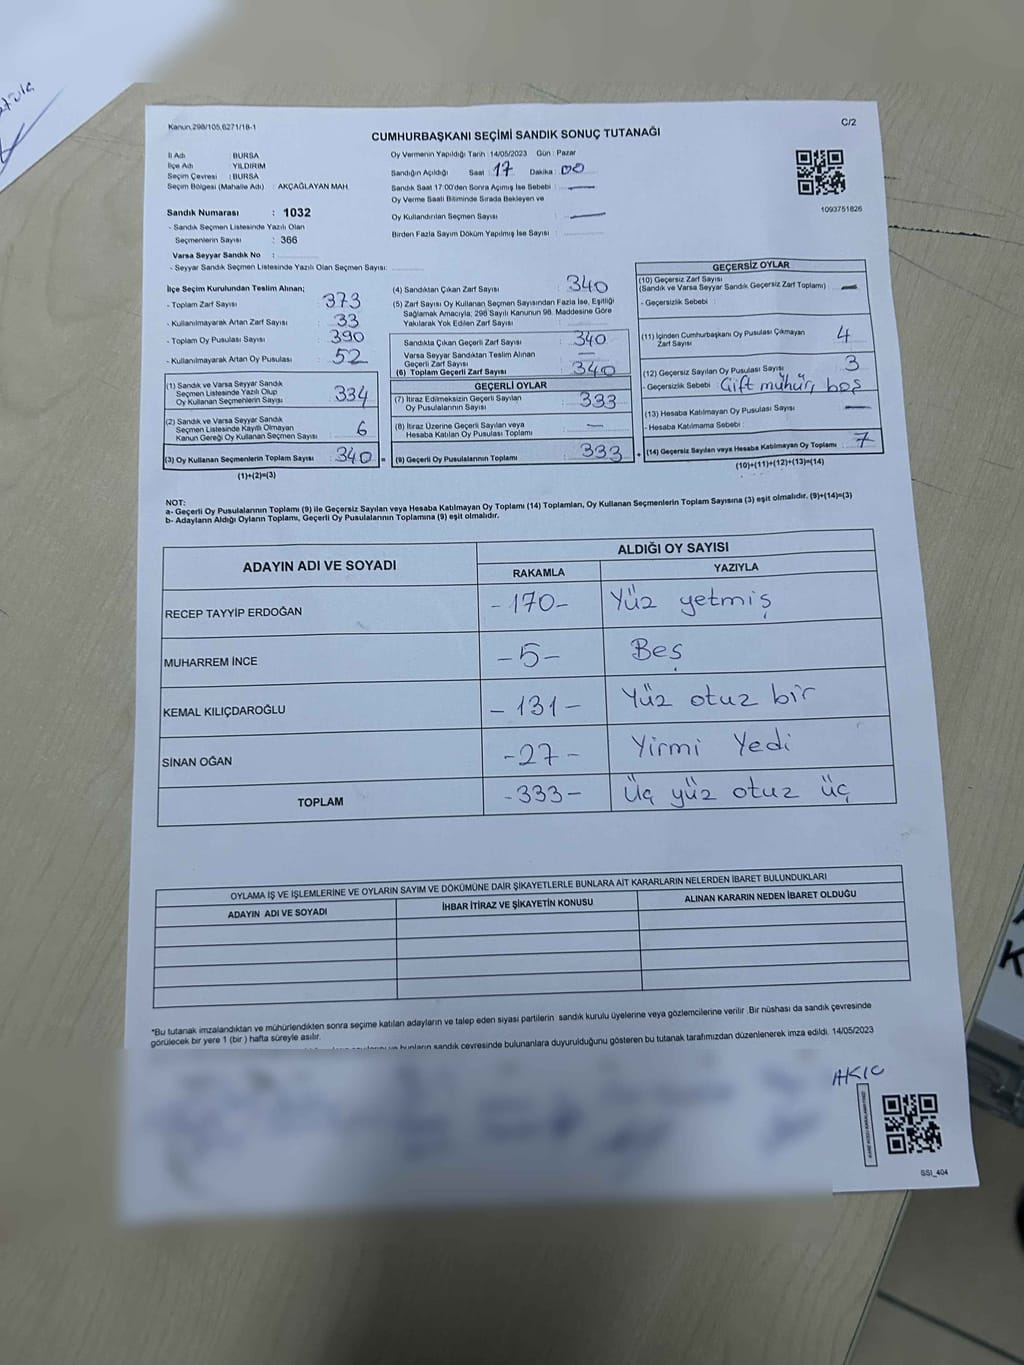 Kanun.298/105,6271/18-1
C/2
CUMHURBAŞKANI SEÇİMİ SANDIK SONUÇ TUTANAĞI
İl Adı : BURSA
İlçe Adı : YILDIRIM
Seçim Çevresi : BURSA
Seçim Bölgesi (Mahalle Adı) : AKÇAĞLAYAN MAH.
Sandık Numarası : 1032
- Sandık Seçmen Listesinde Yazılı Olan
Seçmenlerin Sayısı : 366
Varsa Seyyar Sandık No :
- Seyyar Sandık Seçmen Listesinde Yazılı Olan Seçmen Sayısı:
Oy Vermenin Yapıldığı Tarih : 14/05/2023 Gün : Pazar
Sandığın Açıldığı Saat : 17 Dakika : 00
Sandık Saat 17:00'den Sonra Açımış İse Sebebi : —
Oy Verme Saati Bitiminde Sırada Bekleyen ve
Oy Kullandırılan Seçmen Sayısı : —
Birden Fazla Sayım Döküm Yapılmış İse Sayısı :
1093751826
İlçe Seçim Kurulundan Teslim Alınan;
- Toplam Zarf Sayısı : 373
- Kullanılmayarak Artan Zarf Sayısı : 33
- Toplam Oy Pusulası Sayısı : 390
- Kullanılmayarak Artan Oy Pusulası : 52
(1) Sandık ve Varsa Seyyar Sandık
Seçmen Listesinde Yazılı Olup
Oy Kullanan Seçmenlerin Sayısı : 334
(2) Sandık ve Varsa Seyyar Sandık
Seçmen Listesinde Kayıtlı Olmayan
Kanun Gereği Oy Kullanan Seçmen Sayısı : 6
(3) Oy Kullanan Seçmenlerin Toplam Sayısı : 340 =
(1)+(2)=(3)
(4) Sandıktan Çıkan Zarf Sayısı : 340
(5) Zarf Sayısı Oy Kullanan Seçmen Sayısından Fazla İse, Eşitliği
Sağlamak Amacıyla, 298 Sayılı Kanunun 98. Maddesine Göre
Yakılarak Yok Edilen Zarf Sayısı :
Sandıkta Çıkan Geçerli Zarf Sayısı : 340
Varsa Seyyar Sandıktan Teslim Alınan
Geçerli Zarf Sayısı : —
(6) Toplam Geçerli Zarf Sayısı : 340
GEÇERLİ OYLAR
(7) İtiraz Edilmeksizin Geçerli Sayılan
Oy Pusulalarının Sayısı : 333
(8) İtiraz Üzerine Geçerli Sayılan veya
Hesaba Katılan Oy Pusulası Toplamı : —
(9) Geçerli Oy Pusulalarının Toplamı : 333 +
GEÇERSİZ OYLAR
(10) Geçersiz Zarf Sayısı
(Sandık ve Varsa Seyyar Sandık Geçersiz Zarf Toplamı) : —
- Geçersizlik Sebebi :
(11) İçinden Cumhurbaşkanı Oy Pusulası Çıkmayan
Zarf Sayısı : 4
(12) Geçersiz Sayılan Oy Pusulası Sayısı : 3
- Geçersizlik Sebebi : Çift mühür, boş
(13) Hesaba Katılmayan Oy Pusulası Sayısı : —
- Hesaba Katılmama Sebebi :
(14) Geçersiz Sayılan veya Hesaba Katılmayan Oy Toplamı : 7
(10)+(11)+(12)+(13)=(14)
NOT:
a- Geçerli Oy Pusulalarının Toplamı (9) ile Geçersiz Sayılan veya Hesaba Katılmayan Oy Toplamı (14) Toplamları, Oy Kullanan Seçmenlerin Toplam Sayısına (3) eşit olmalıdır. (9)+(14)=(3)
b- Adayların Aldığı Oyların Toplamı, Geçerli Oy Pusulalarının Toplamına (9) eşit olmalıdır.
ADAYIN ADI VE SOYADI
ALDIĞI OY SAYISI
RAKAMLA YAZIYLA
RECEP TAYYİP ERDOĞAN -170- Yüz yetmiş
MUHARREM İNCE -5- Beş
KEMAL KILIÇDAROĞLU -131- Yüz otuz bir
SİNAN OĞAN -27- Yirmi Yedi
TOPLAM -333- Üç yüz otuz üç
OYLAMA İŞ VE İŞLEMLERİNE VE OYLARIN SAYIM VE DÖKÜMÜNE DAİR ŞİKAYETLERLE BUNLARA AİT KARARLARIN NELERDEN İBARET BULUNDUKLARI
ADAYIN ADI VE SOYADI İHBAR İTİRAZ VE ŞİKAYETİN KONUSU ALINAN KARARIN NEDEN İBARET OLDUĞU
"Bu tutanak imzalandıktan ve mühürlendikten sonra seçime katılan adayların ve talep eden siyasi partilerin sandık kurulu üyelerine veya gözlemcilerine verilir .Bir nüshası da sandık çevresinde
görülecek bir yere 1 (bir ) hafta süreyle asılır.
bunların sandık çevresinde bulunanlara duyurulduğunu gösteren bu tutanak tarafımızdan düzenlenerek imza edildi. 14/05/2023
SSI_404